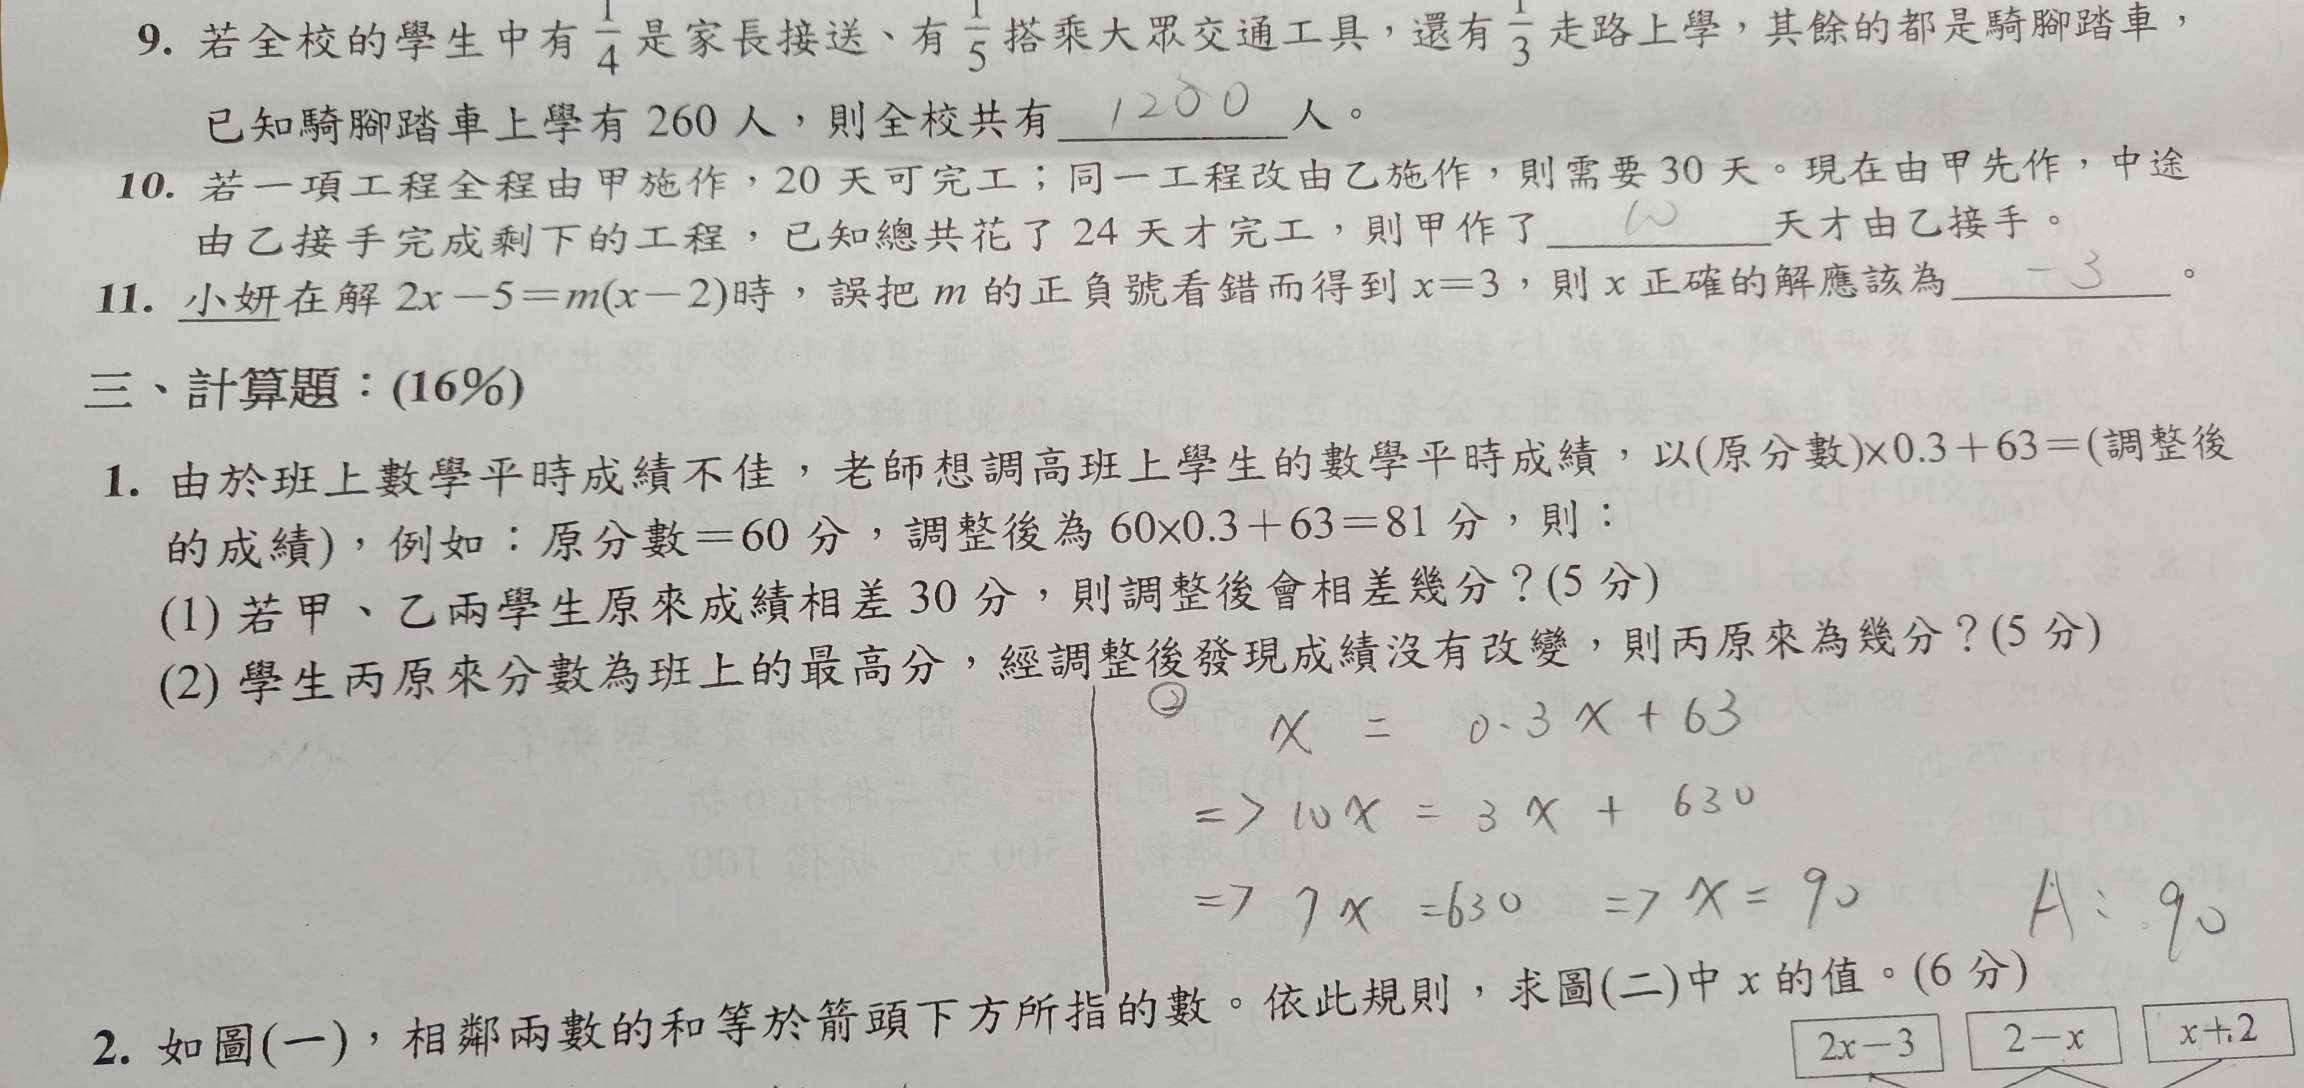 9. 若全校的學生中有 1/4 是家長接送、有 1/5 搭乘大眾交通工具，還有 1/3 走路上學，其餘的都是騎腳踏車，
已知騎腳踏車上學有 260 人，則全校共有 1200 人。
10. 若一項工程全程由甲施作，20 天可完工；同一工程改由乙施作，則需要 30 天。現在由甲先作，中途
由乙接手完成剩下的工程，已知總共花了 24 天才完工，則甲作了 天才由乙接手。
11. 小妍在解 2x－5＝m(x－2)時，誤把 m 的正負號看錯而得到 x＝3，則 x 正確的解應該為 －3。
三、計算題：(16%)
1. 由於班上數學平時成績不佳，老師想調高班上學生的數學平時成績，以(原分數)×0.3＋63＝(調整後
的成績)，例如：原分數＝60 分，調整後為 60×0.3＋63＝81 分，則：
(1) 若甲、乙兩學生原來成績相差 30 分，則調整後會相差幾分？(5 分)
(2) 學生丙原來分數為班上的最高分，經調整後發現成績沒有改變，則丙原來為幾分？(5 分)
② x = 0.3x + 63
=> 10x = 3x + 630
=> 7x = 630 => x = 90 A: 90
2. 如圖(一)，相鄰兩數的和等於箭頭下方所指的數。依此規則，求圖(二)中 x 的值。(6 分)
2x－3 2－x x＋2